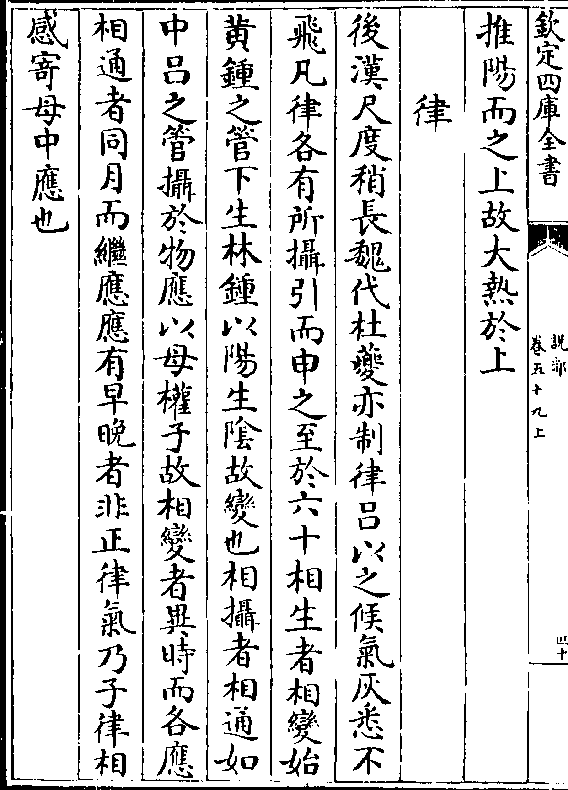 欽定四庫全書
說郛
卷五十九上
四十
推陽而之上故大熱於上
律
後漢尺度稍長魏代杜夔亦制律呂以之候氣灰悉不
飛凡律各有所攝引而申之至於六十相生者相變始
黄鍾之管下生林鍾以陽生陰故變也相攝者相通如
中呂之管攝於物應以母權子故相變者異時而各應
相通者同月而繼應應有早晚者非正律氣乃子律相
感寄母中應也